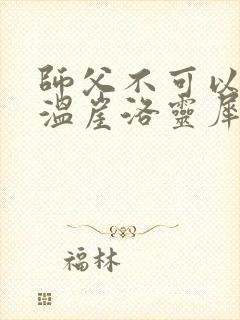 師父不可以
溫崖洛靈犀
福林